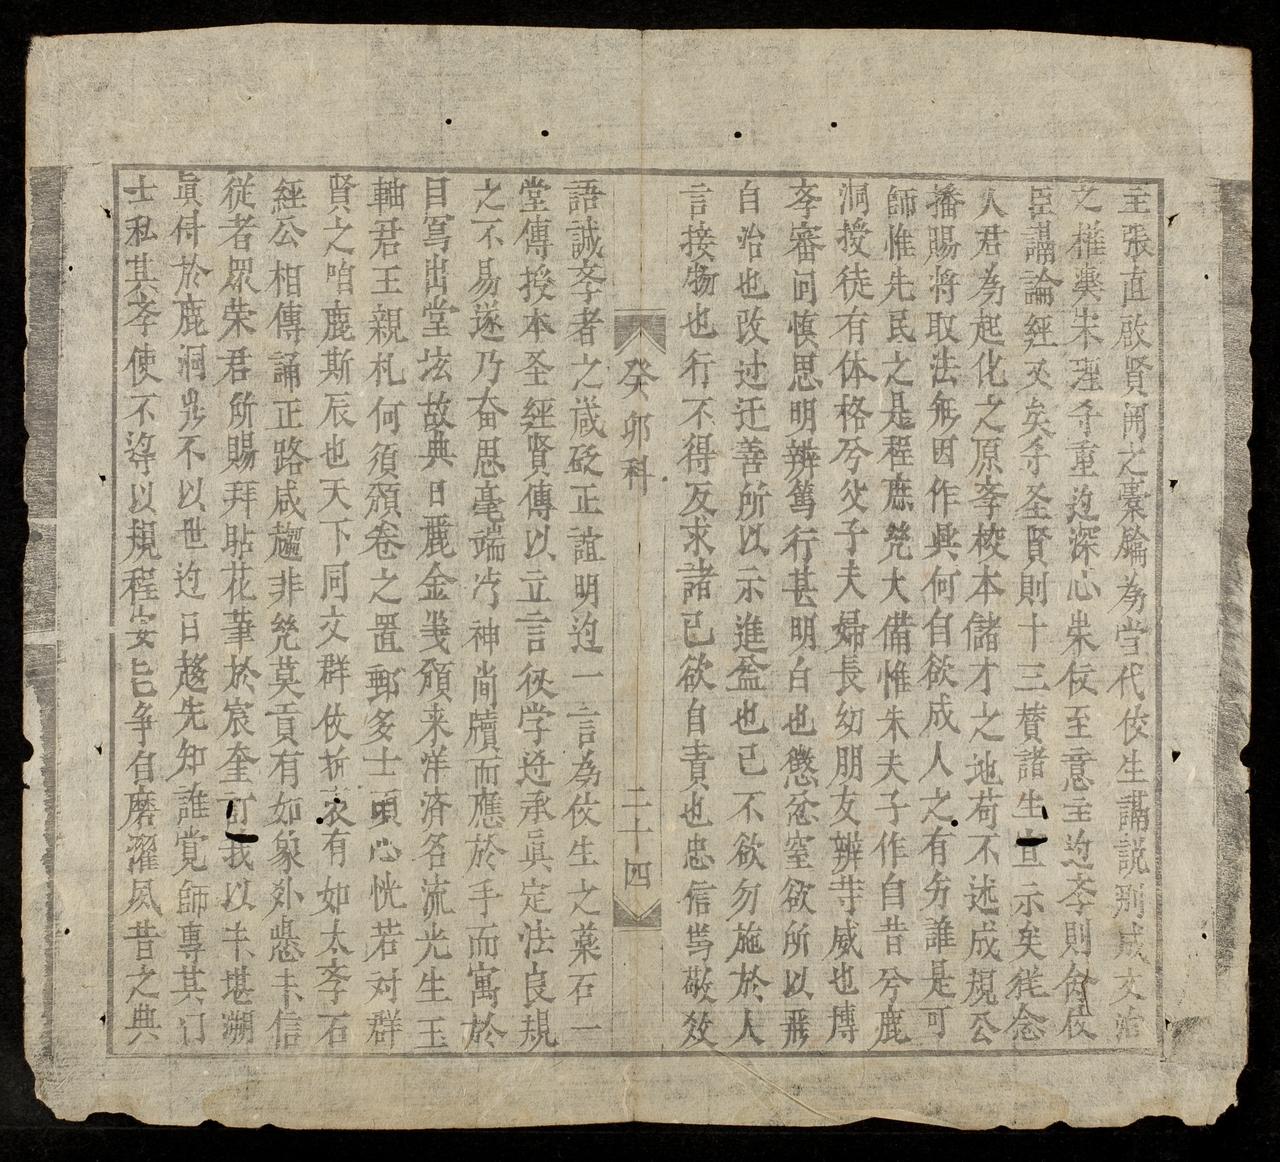 主張直啟賢開之橐鑰為當代伩生講説㓝成文治
之權輿朱理乎重迫深心朱伩至意至迫斈則命伩
臣講論經文矣乎圣賢則十三賛諸生宣示矣徃念
人君為起化之原斈校本儲才之地苟不述成規公
播賜将取法無因作興何自欲成人之有方誰是可
師惟先民之是程庶㡬大備惟朱夫子作自昔兮鹿
洞授徒有体格兮父子夫婦長幼朋友辨䓁威也博
斈審问慎思明辨篤行甚明白也懲忿窒欲所以飛
自治也改过迁善所以示進盈也己不欲勿施於人
言接物也行不得反求諸己欲自責也忠信笃敬效
癸卯科
二十四
語誠斈者之箴砭正誼明迫一言為伩生之藥石一
堂傳授本圣經賢傳以立言後学迓承眞定法良規
之不易遂乃奋思毫端㳓神尚牘而應於手而寓於
目写出堂坛故典日麗金箋頒来洋済名流光生玉
軸君王親札何須頒卷之置郵多士頭心恍若对群
賢之咱鹿斯辰也天下同文群伩折衷有如太斈石
經公相傳誦正路咸趨非㡬莫貢有如象外懸未信
従者眾荣君所賜拜貼花箽於宸奎訂我以未堪溯
眞侍於鹿洞㫷不以世迫日趍先知誰覚師專其门
士私其斈使不逰以規程安邑争自磨濯夙昔之典